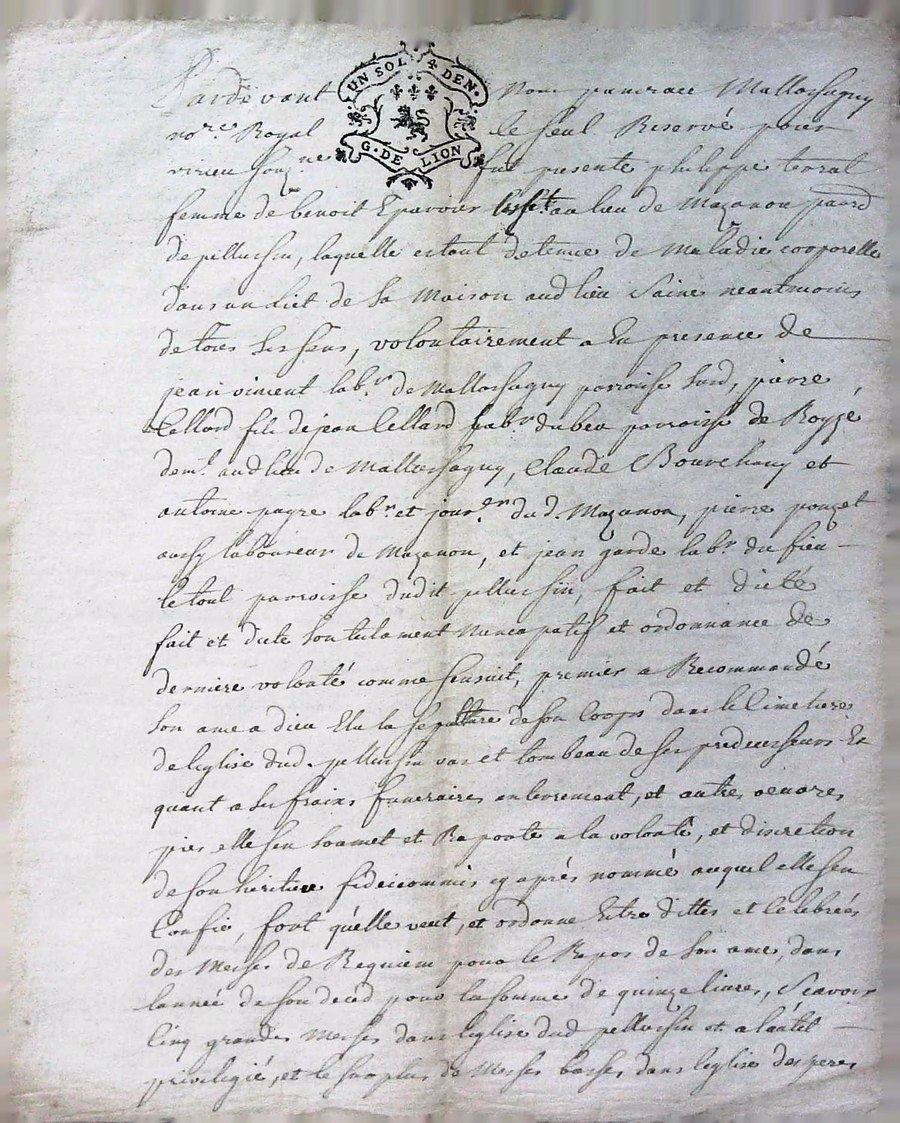 UN SOL 4 DEN.
G. DE LION
Pardevant Nous pancrace Mallossagny
no.re Royal le seul Reservé pour
virieu souz.ne fut presente philippe terral
femme de benoit Eparvier au lieu de Mazanon parr.d
de pellussin, laquelle estant detenue de Maladie corporelle
dans un lict de sa Maison aud lieu saine neantmoins
de tous ses sens, volontairement a En presence de
jean viment lab.r de Mallossagny parroisse sud, pierre
Cellard fils de jean Cellard lab.r du beu parroisse de
dem.t aud lieu de Mallossagny, Claude Bourchany et
antoine payre lab.r et jour.er du d. Mazanon, pierre pouzet
aussy laboureur de Mazanon, et jean garde lab.r du fieu
le tout parroisse dudit pellussin, fait et dicté
fait et dicte son testament Nuncupatif et ordonnance de
derniere volonté comme sensuit, premier a Recommandé
son ame a dieu Elu la sepulture de son Corps dans le Cimetiere
de leglise dud. pellussin vas et tombeau de ses predecesseurs Et
quant a ses frains funeraires enterrement, et autres oeuvres
pies elle sen soumet et Raporte a la volonté, et discretion
de son heritier fideicommis cy après nommé auquel elle sen
Confie, fort qu'elle veut, et ordonne Estre dittes et Celebrées
des Messes de Requiem pour le Repos de son ame, dans
lannée de son deced pour la somme de quinze livres, scavoir
Cinq grandes Messes dans leglise dud pellussin et a lautel
privilegié, et le surplus de Messes basses dans leglise des peres